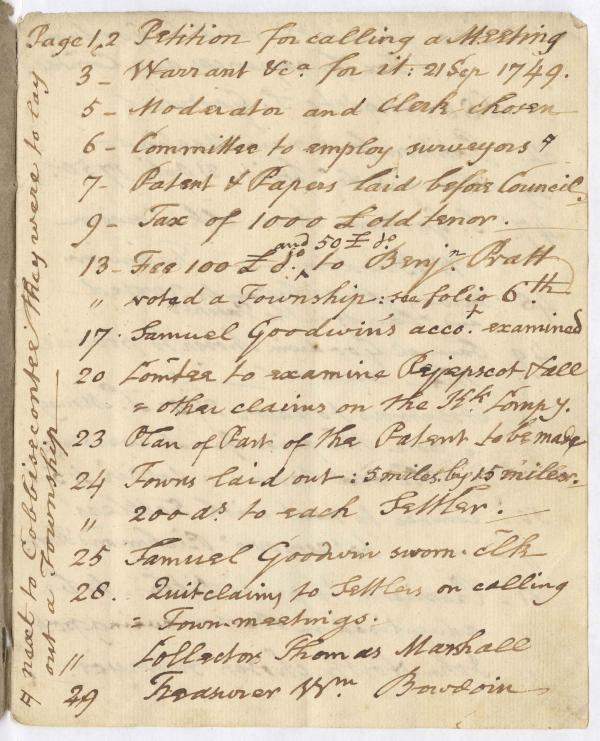 Page 1,2 Petition for calling a Meeting
3 - Warrant &ca for it: 21 Sep 1749.
5 - Moderator and Clerk chosen
6 - Committee to employ surveyors ꟼ
7 - Patent & Papers laid before Council.
9 - Tax of 1000 £ old tenor.
and 50 £ do
13 - Fee 100 £ do. ^ to Benjn. Pratt
" voted a Township: see folio 6th.
17. Samuel Goodwin's acco.t examined
20 Comtee to examine Pejepscot & all
= other claims on the Kk Compy.
23 Plan of Part of the Patent to be made
24 Towns laid out: 5 miles by 15 miles.
" 200 as. to each Settler.
25 Samuel Goodwin sworn. clk
28. Quitclaims to Settlers on calling
= Town-meetings.
" Collector Thomas Marshall
29 Treasurer Wm Bowdoin
ꟼ next to Cobbisecontee they were to lay
out a Township